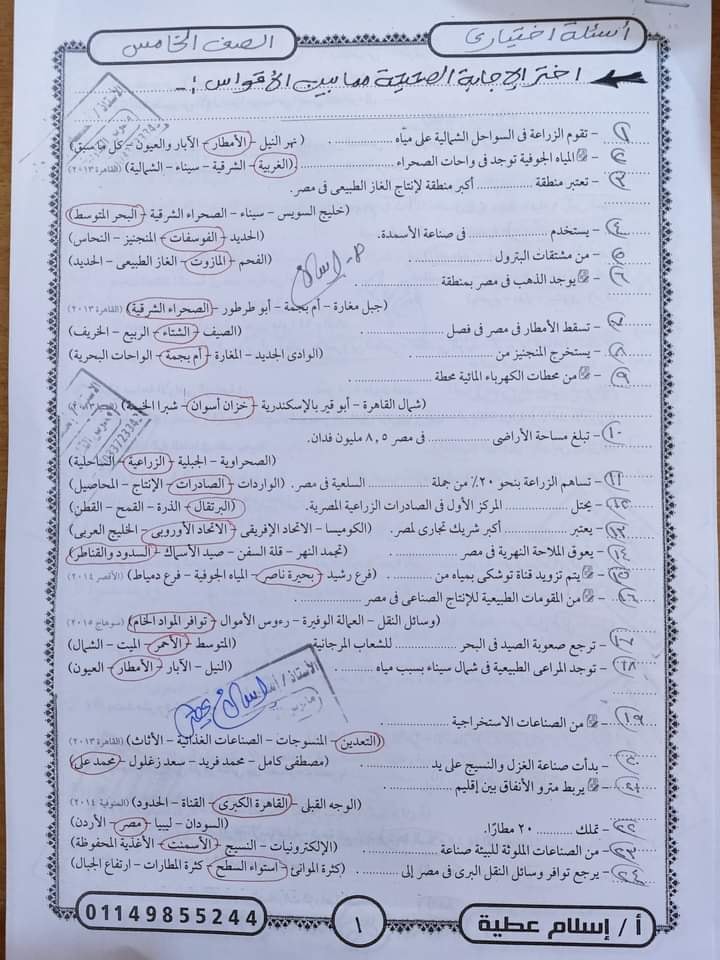 أسئلة اختياري
الصف الخامس
اختر الإجابة الصحيحة مما بين الأقواس :-
١ - تقوم الزراعة فى السواحل الشمالية على مياه .......... (نهر النيل - الأمطار - الآبار والعيون - كل ما سبق)
٢ - المياه الجوفية توجد فى واحات الصحراء .......... (الغربية - الشرقية - سيناء - الشمالية) (القاهرة ٢٠١٣)
٣ - تعتبر منطقة .......... أكبر منطقة لإنتاج الغاز الطبيعى فى مصر.
(خليج السويس - سيناء - الصحراء الشرقية - البحر المتوسط)
٤ - يستخدم .......... فى صناعة الأسمدة. (الحديد - الفوسفات - المنجنيز - النحاس)
٥ - من مشتقات البترول .......... (الفحم - المازوت - الغاز الطبيعى - الحديد)
٦ - يوجد الذهب فى مصر بمنطقة ..........
(جبل مغارة - أم بجمة - أبو طرطور - الصحراء الشرقية) (القاهرة ٢٠١٣)
٧ - تسقط الأمطار فى مصر فى فصل .......... (الصيف - الشتاء - الربيع - الخريف)
٨ - يستخرج المنجنيز من .......... (الوادى الجديد - المغارة - أم بجمة - الواحات البحرية)
٩ - من محطات الكهرباء المائية محطة ..........
(شمال القاهرة - أبو قير بالإسكندرية - خزان أسوان - شبرا الخيمة)
١٠ - تبلغ مساحة الأراضى .......... فى مصر ٨,٥ مليون فدان.
(الصحراوية - الجبلية - الزراعية - الساحلية)
١١ - تساهم الزراعة بنحو ٢٠٪ من جملة .......... السلعية فى مصر. (الواردات - الصادرات - الإنتاج - المحاصيل)
١٢ - يحتل .......... المركز الأول فى الصادرات الزراعية المصرية. (البرتقال - الذرة - القمح - القطن)
١٣ - يعتبر .......... أكبر شريك تجارى لمصر. (الكوميسا - الاتحاد الإفريقى - الاتحاد الأوروبى - الخليج العربى)
١٤ - يعوق الملاحة النهرية فى مصر .......... (تجمد النهر - قلة السفن - صيد الأسماك - السدود والقناطر)
١٥ - يتم تزويد قناة توشكى بمياه من .......... (فرع رشيد - بحيرة ناصر - المياه الجوفية - فرع دمياط) (الأقصر ٢٠١٤)
١٦ - من المقومات الطبيعية للإنتاج الصناعى فى مصر ..........
(وسائل النقل - العمالة الوفيرة - رءوس الأموال - توافر المواد الخام) (سوهاج ٢٠١٥)
١٧ - ترجع صعوبة الصيد فى البحر .......... للشعاب المرجانية (المتوسط - الأحمر - الميت - الشمال)
١٨ - توجد المراعى الطبيعية فى شمال سيناء بسبب مياه .......... (النيل - الآبار - الأمطار - العيون)
١٩ - من الصناعات الاستخراجية ..........
(التعدين - المنسوجات - الصناعات الغذائية - الأثاث) (القاهرة ٢٠١٣)
٢٠ - بدأت صناعة الغزل والنسيج على يد .......... (مصطفى كامل - محمد فريد - سعد زغلول - محمد على)
٢١ - يربط مترو الأنفاق بين إقليم ..........
(الوجه القبلى - القاهرة الكبرى - القناة - الحدود) (المنوفية ٢٠١٤)
٢٢ - تملك .......... ٢٠ مطارًا. (السودان - ليبيا - مصر - الأردن)
٢٣ - من الصناعات الملوثة للبيئة صناعة .......... (الإلكترونيات - النسيج - الأسمنت - الأغذية المحفوظة)
٢٤ - يرجع توافر وسائل النقل البرى فى مصر إلى .......... (كثرة الموانئ - استواء السطح - كثرة المطارات - ارتفاع الجبال)
أ / إسلام عطية
١
01149855244